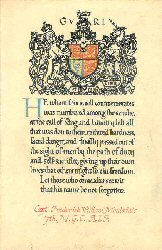 G V R I
He whom this scroll commemorates
was numbered among those who,
at the call of King and Country, left all
that was dear to them, endured hardness,
faced danger, and finally passed out of
the sight of men by the path of duty
and self-sacrifice, giving up their own
lives that others might live in freedom.
Let those who come after see to it
that his name be not forgotten.
Capt. Frederick William